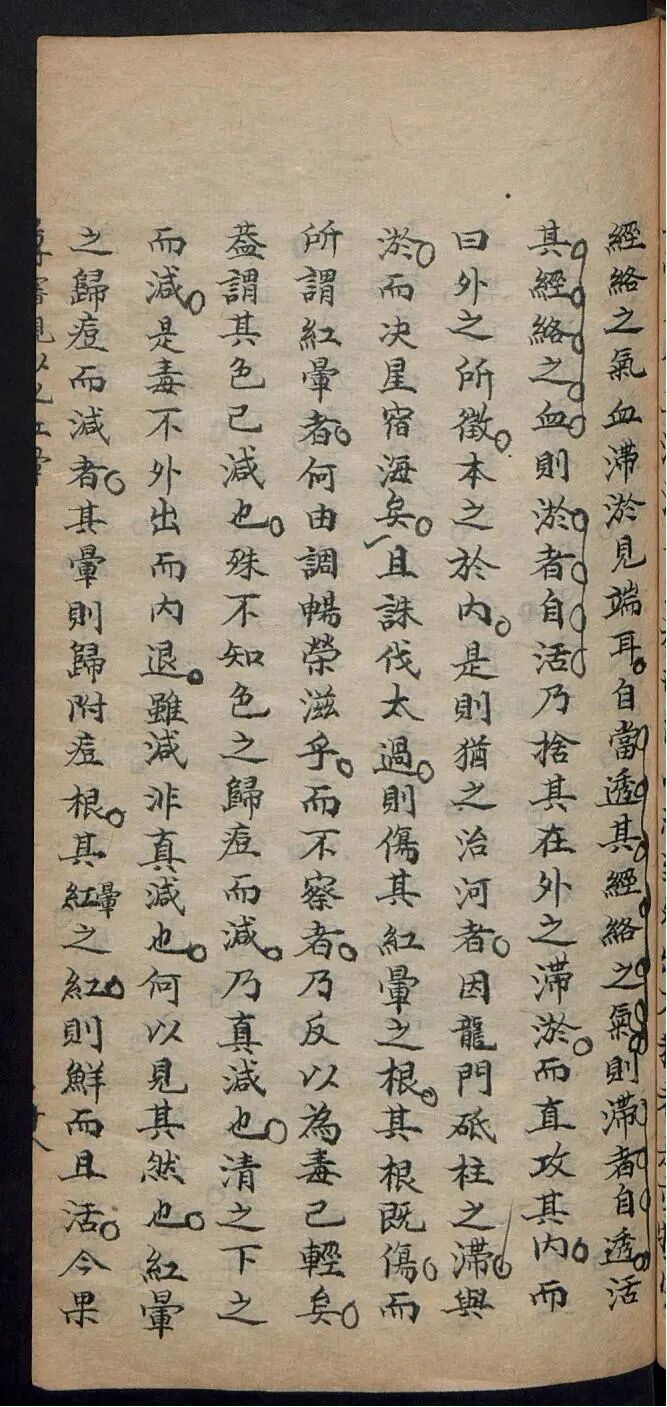 經絡之氣血滯淤見端耳自當透其經絡之氣則滯者自透活
其經絡之血則淤者自活乃捨其在外之滯淤而直攻其内而
曰外之所徵本之於内是則猶之治河者因龍門砥柱之滯與
淤而决星宿海矣且誅伐太過則傷其紅暈之根其根既傷而
所謂紅暈者何由調暢榮滋乎而不察者乃反以為毒已輕矣
葢謂其色已減也殊不知色之歸痘而減乃真減也清之下之
而減是毒不外出而内退雖減非真減也何以見其然也紅暈
之歸痘而減者其暈則歸附痘根其紅暈之紅則鮮而且活今果